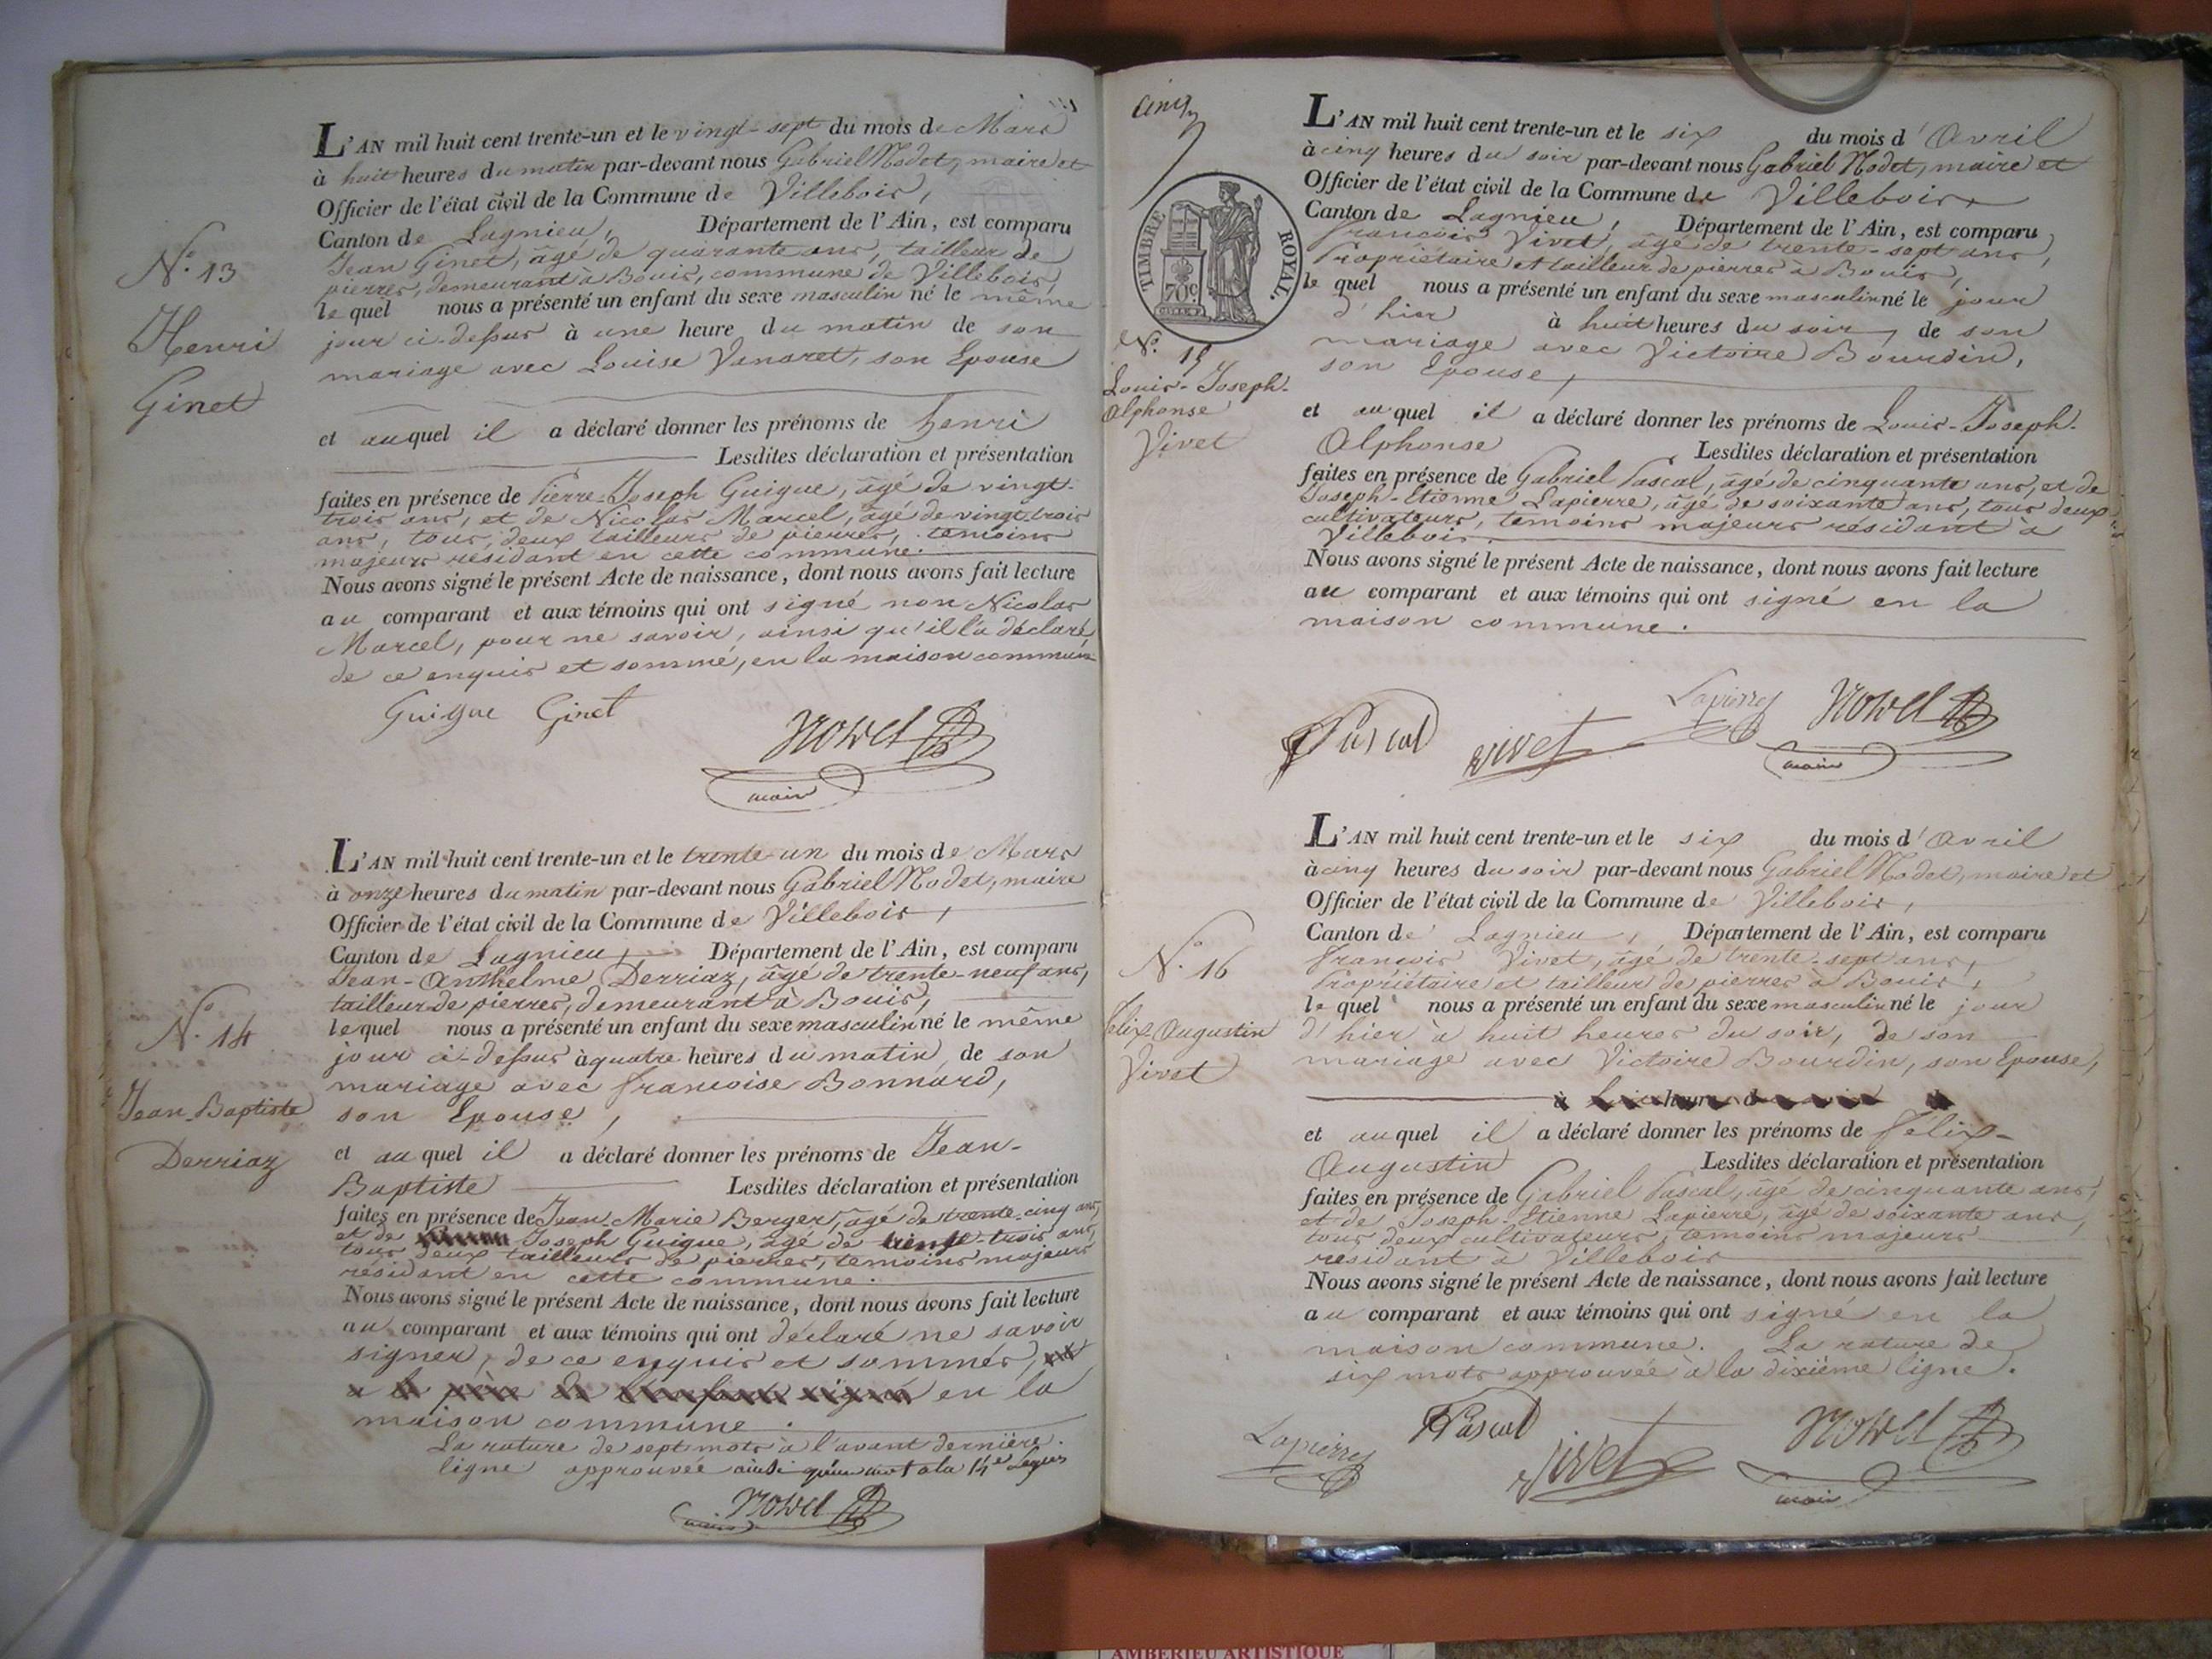 L'AN mil huit cent trente-un et le vingt-sept du mois de Mars
à huit heures du matin par-devant nous Gabriel Nodet, maire et
Officier de l'état civil de la Commune de Villebois,
Canton de Lagnieu, Département de l'Ain, est comparu
Jean Ginet, âgé de quarante ans, tailleur de
pierres, demeurant à Bouis, commune de Villebois,
le quel nous a présenté un enfant du sexe masculin né le même
jour ci-dessus à une heure du matin de son
mariage avec Louise Vanaret, son Epouse
et auquel il a déclaré donner les prénoms de henri
Lesdites déclaration et présentation
faites en présence de Pierre-Joseph Guigue, âgé de vingt-
trois ans, et de Nicolas Marcel, âgé de vingt-trois
ans, tous deux tailleurs de pierres, temoins
majeurs résidant en cette commune.
Nous avons signé le présent Acte de naissance, dont nous avons fait lecture
au comparant et aux témoins qui ont signé non Nicolas
Marcel, pour ne savoir, ainsi qu'il l'a déclaré,
de ce enquis et sommé, en la maison commune
Guigue Ginet
Nodet
maire
N.º 13
Henri
Ginet
L'AN mil huit cent trente-un et le trente-un du mois de Mars
à onze heures du matin par-devant nous Gabriel Nodet, maire
Officier de l'état civil de la Commune de Villebois,
Canton de Lagnieu, Département de l'Ain, est comparu
Jean-Anthelme Derriaz, âgé de trente-neuf ans,
tailleur de pierres, demeurant à Bouis,
le quel nous a présenté un enfant du sexe masculin né le même
jour ci-dessus à quatre heures du matin de son
mariage avec françoise Bonnard,
son Epouse,
et au quel il a déclaré donner les prénoms de Jean-
Baptiste Lesdites déclaration et présentation
faites en présence de Jean-Marie Berger, âgé de trente-cinq ans,
et de Joseph Guigue, âgé de trois ans,
tous deux tailleurs de pierres, temoins majeurs
résidant en cette commune.
Nous avons signé le présent Acte de naissance, dont nous avons fait lecture
au comparant et aux témoins qui ont déclaré ne savoir
signer, de ce enquis et sommés,
en la
maison commune.
La rature de sept mots à l'avant dernière
ligne approuvée ainsi qu'un mot a la 14e
Nodet
maire
N.º 14
Jean-Baptiste
Derriaz
cinq
TIMBRE ROYAL.
70c
L'AN mil huit cent trente-un et le six du mois d'Avril
à cinq heures du soir par-devant nous Gabriel Nodet, maire et
Officier de l'état civil de la Commune de Villebois
Canton de Lagnieu, Département de l'Ain, est comparu
françois Vivet, âgé de trente-sept ans,
Propriétaire et tailleur de pierres à Bouis,
le quel nous a présenté un enfant du sexe masculin né le jour
d'hier à huit heures du soir, de son
mariage avec Victoire Bourdin,
son Epouse,
et au quel il a déclaré donner les prénoms de Louis-Joseph-
Alphonse Lesdites déclaration et présentation
faites en présence de Gabriel Pascal, âgé de cinquante ans, et de
Joseph-Etienne Lapierre, âgé de soixante ans, tous deux
cultivateurs, temoins majeurs résidant à
Villebois.
Nous avons signé le présent Acte de naissance, dont nous avons fait lecture
au comparant et aux témoins qui ont signé en la
maison commune.
Pascal vivet Lapierre Nodet
maire
N.º 15
Louis-Joseph-
Alphonse
Vivet
L'AN mil huit cent trente-un et le six du mois d'Avril
à cinq heures du soir par-devant nous Gabriel Nodet, maire et
Officier de l'état civil de la Commune de Villebois,
Canton de Lagnieu, Département de l'Ain, est comparu
françois Vivet, âgé de trente-sept ans,
Propriétaire et tailleur de pierres à Bouis,
le quel nous a présenté un enfant du sexe masculin né le jour
d'hier à huit heures du soir, de son
mariage avec Victoire Bourdin, son Epouse,
et au quel il a déclaré donner les prénoms de felix-
Augustin Lesdites déclaration et présentation
faites en présence de Gabriel Pascal, âgé de cinquante ans,
et de Joseph-Etienne Lapierre, âgé de soixante ans,
tous deux cultivateurs, temoins majeurs
résidant à Villebois
Nous avons signé le présent Acte de naissance, dont nous avons fait lecture
au comparant et aux témoins qui ont signé en la
maison commune. La rature de
six mots approuvée à la dixième ligne.
Lapierre Pascal Vivet Nodet
maire
N.º 16
felix-Augustin
Vivet
AMBERIEU ARTISTIQUE